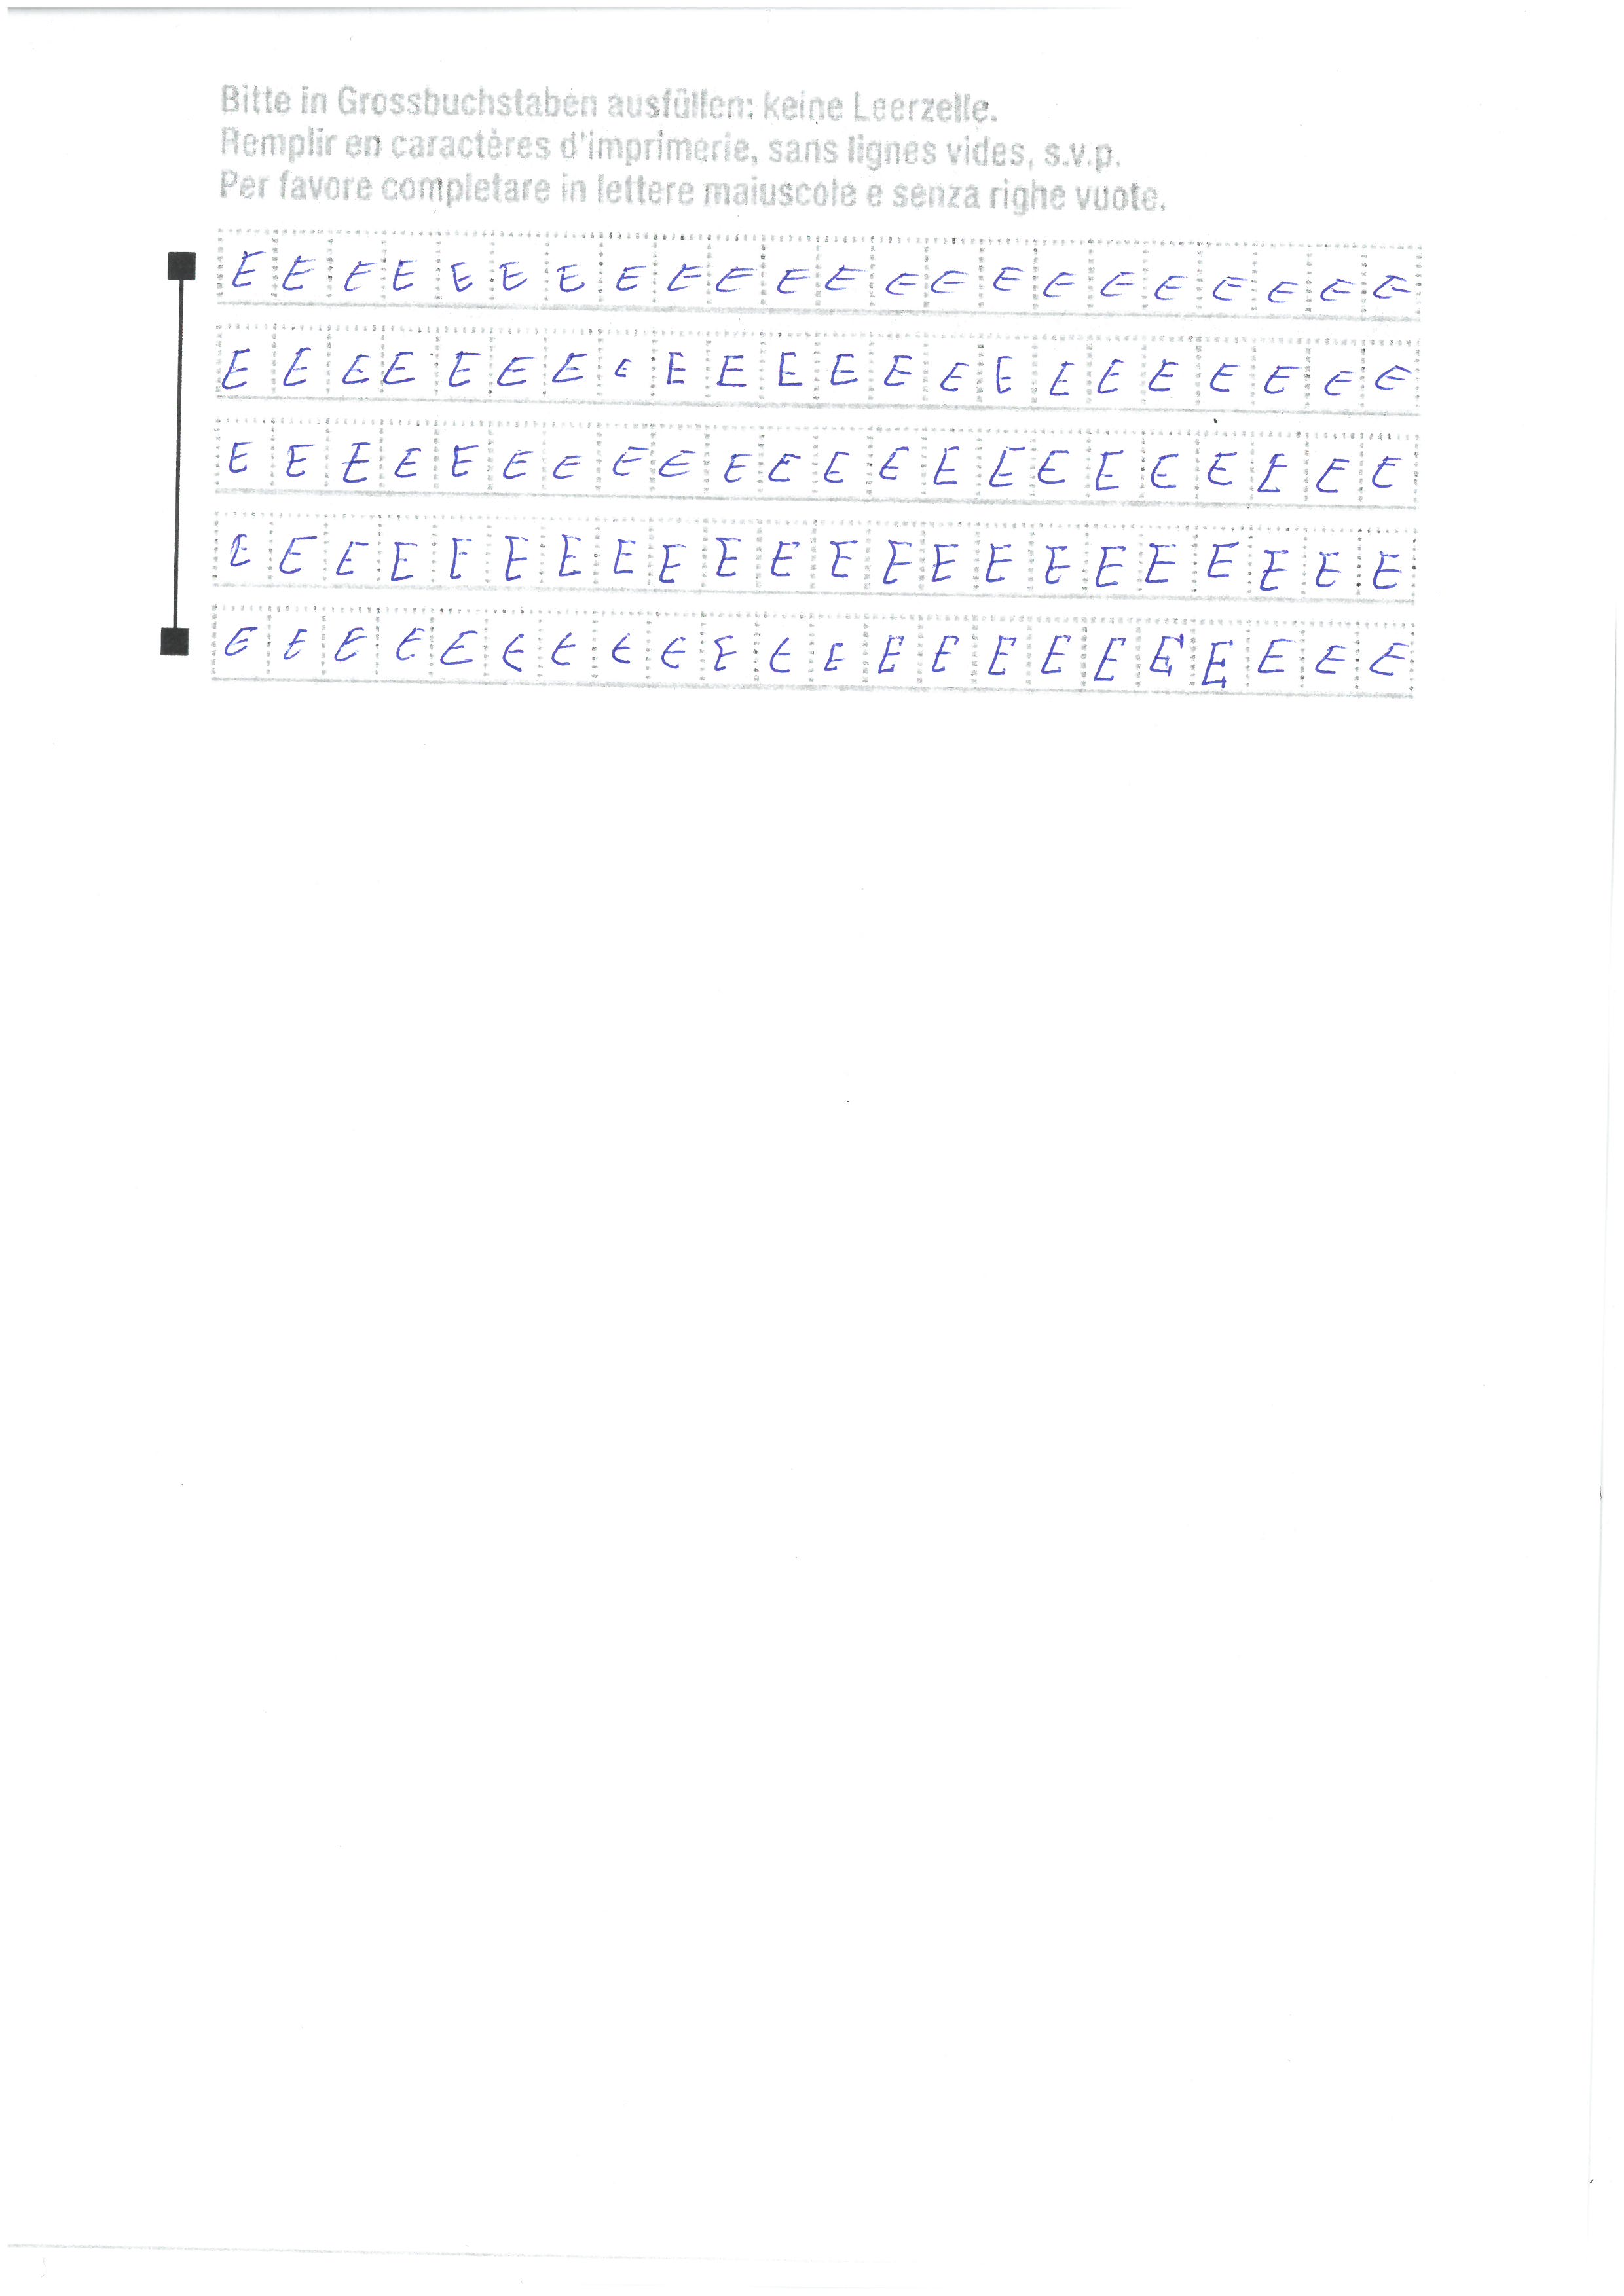 Bitte in Grossbuchstaben ausfüllen: keine Leerzelle.
Remplir en caractères d'imprimerie, sans lignes vides, s.v.p.
Per favore completare in lettere maiuscole e senza righe vuote.
E E E E E E E E E E E E E E E E E E E E E E
E E E E E E E E E E E E E E E E E E E E E E
E E E E E E E E E E E E E E E E E E E E E E
E E E E E E E E E E E E E E E E E E E E E E
E E E E E E E E E E E E E E E E E E E E E E